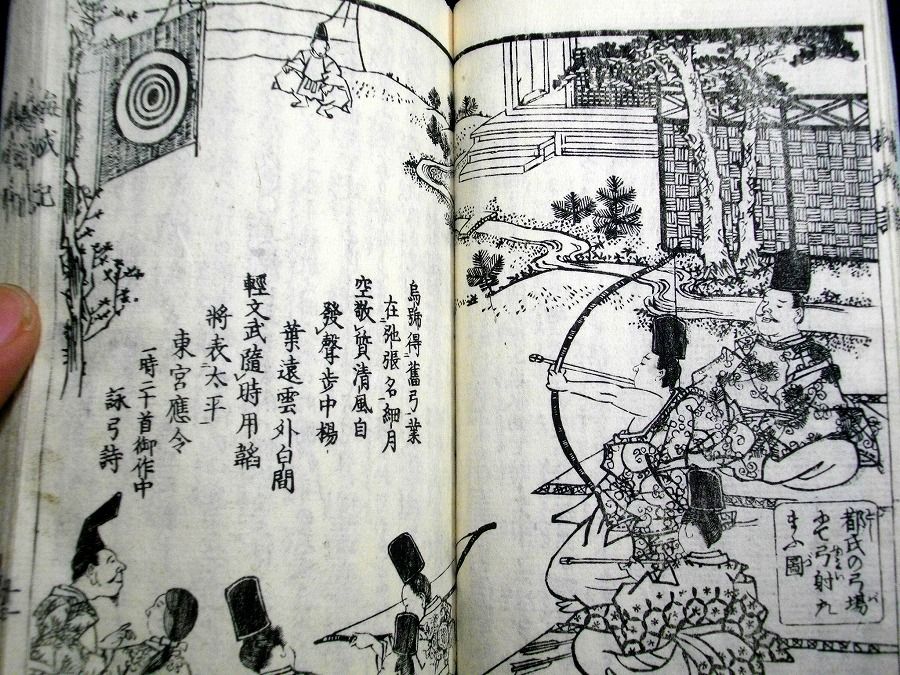 都氏の弓場
にて弓射た
まふ圖
烏號得舊弓業
在弛張名細月
空敬質清風自
發聲步中楊
葉遠雲外白間
輕文武隨時用韜
將表太平
東宮應令
一時二十首御作中
詠弓詩